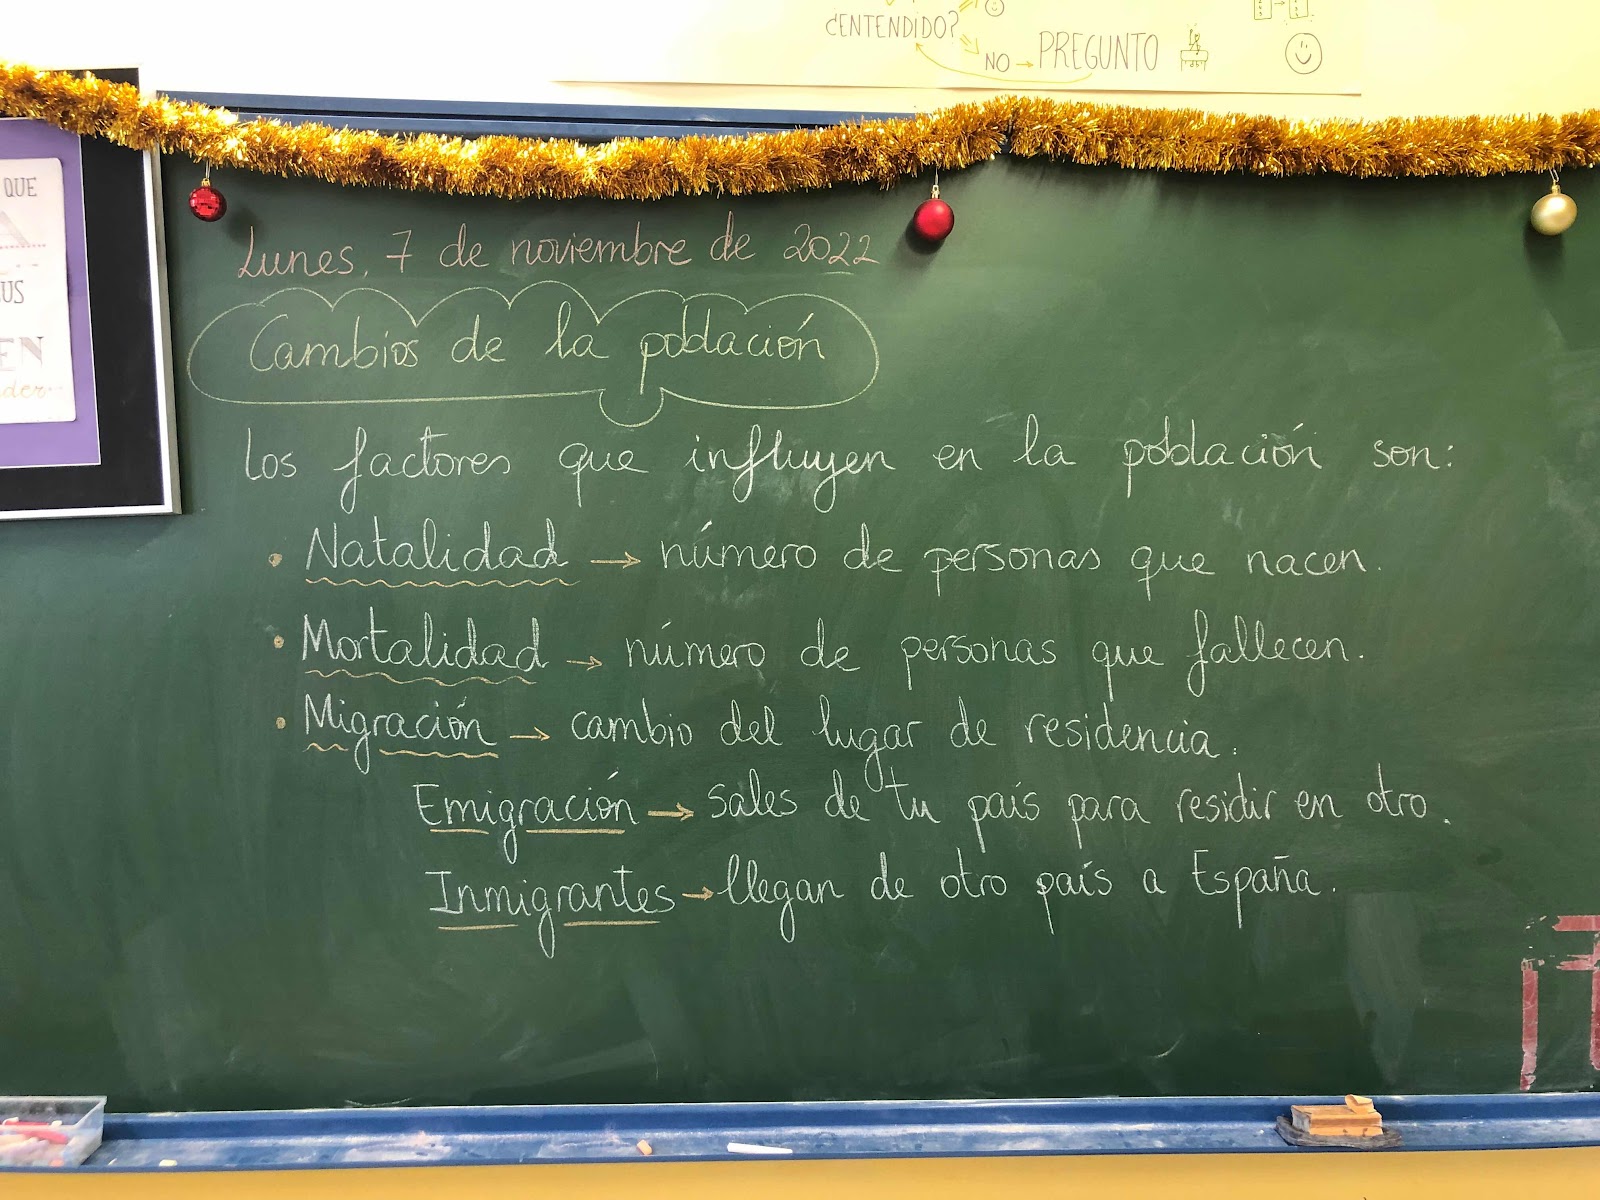 ¿ENTENDIDO?
NO → PREGUNTO
QUE
US
EN
der...
Lunes, 7 de noviembre de 2022
Cambios de la población
Los factores que influyen en la población son:
• Natalidad → número de personas que nacen.
• Mortalidad → número de personas que fallecen.
• Migración → cambio del lugar de residencia.
Emigración → sales de tu país para residir en otro.
Inmigrantes → llegan de otro país a España.